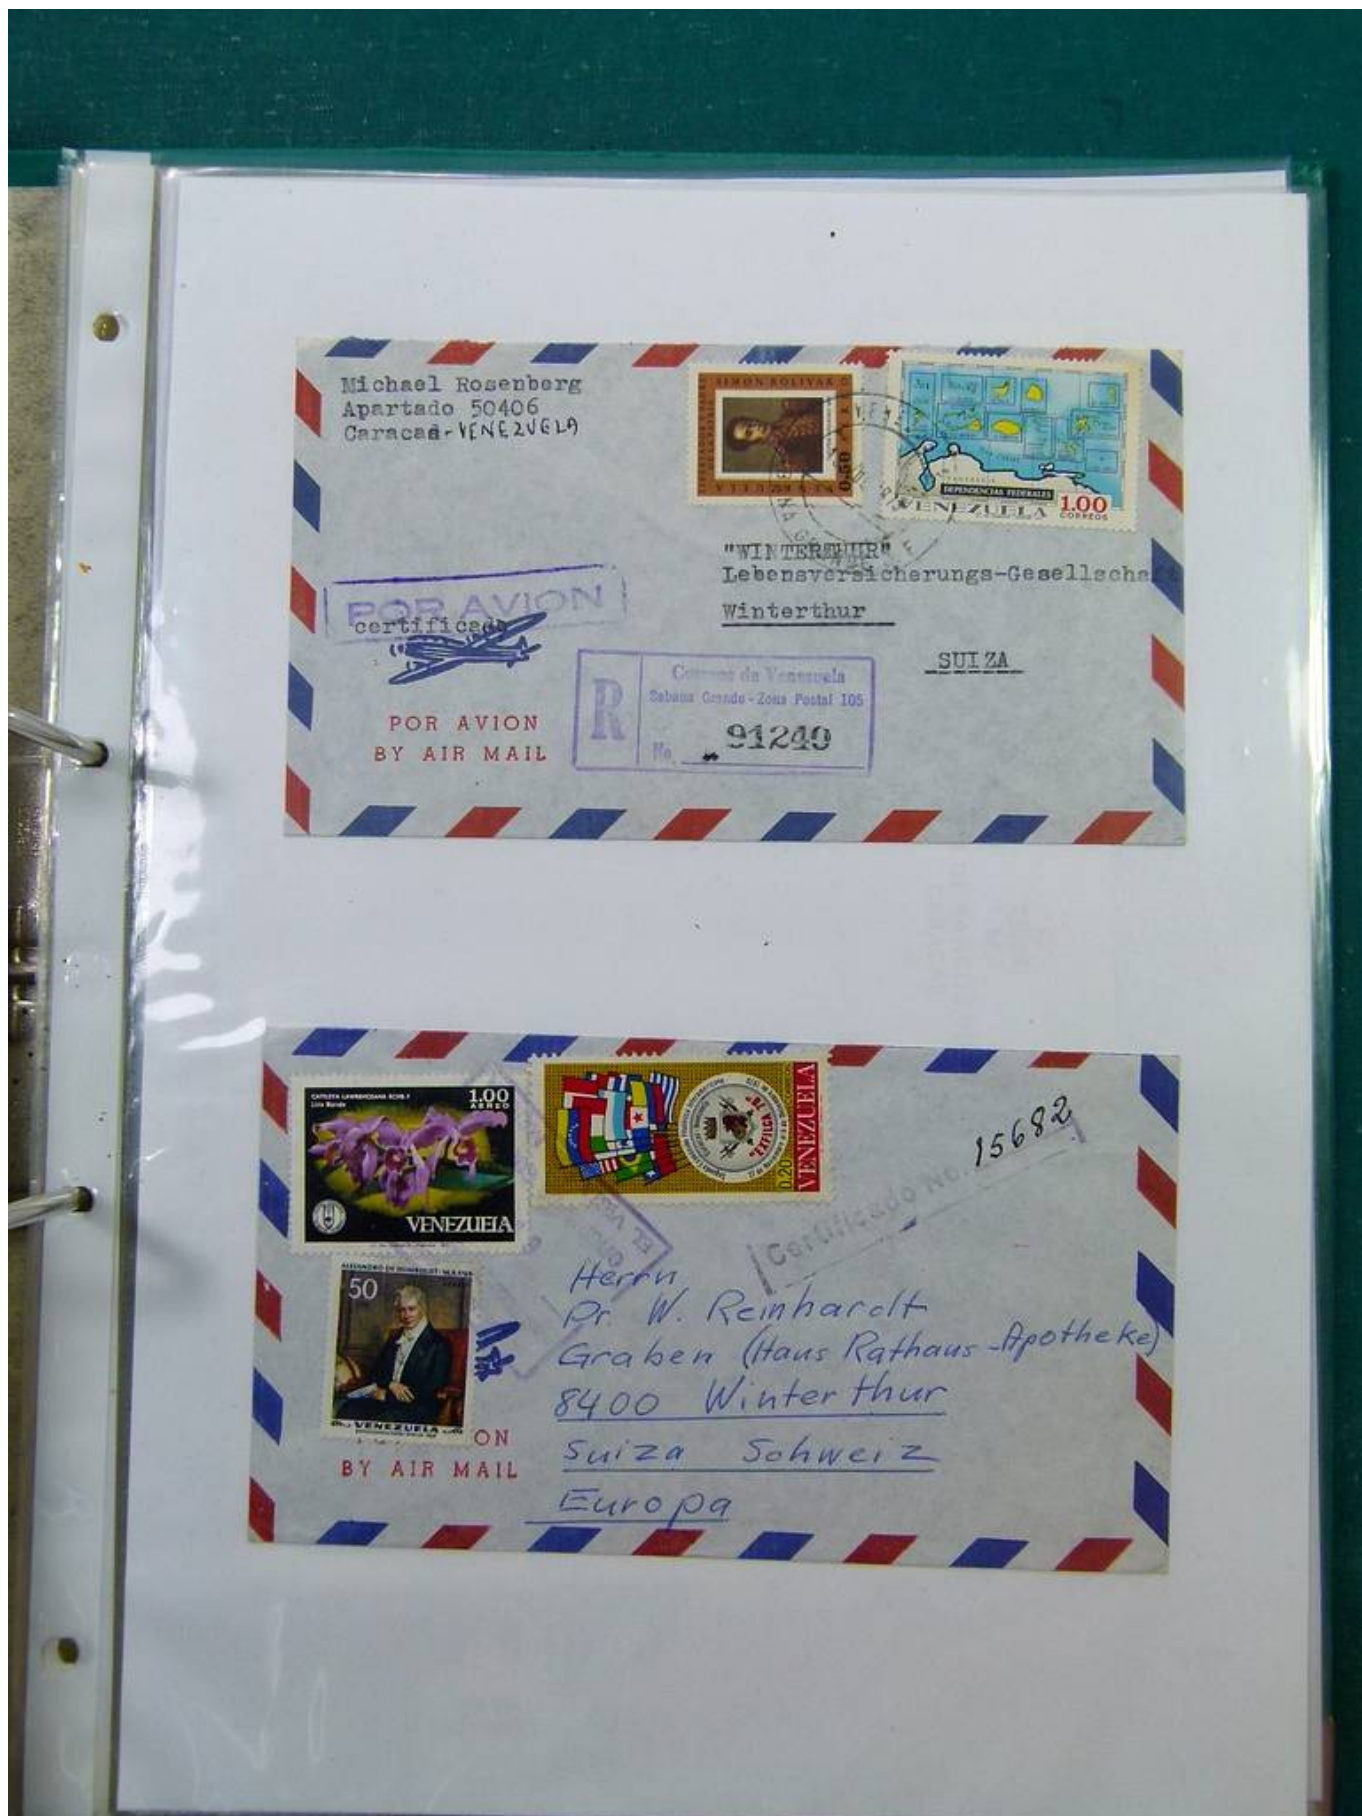 Michael Rosenberg
Apartado 50406
Caracas-VENEZUELA
SIMON BOLIVAR
0.50
DEPENDENCIAS FEDERALES
VENEZUELA 1.00
CORREOS
"WINTERTHUR"
Lebensversicherungs-Gesellscha
Winterthur
SUIZA
POR AVION
certificado
POR AVION
BY AIR MAIL
R
Correos de Venezuela
Sabana Grande - Zona Postal 105
No. 91240
CATTLEYA LAWRENCEANA RCHB. F
1.00
AEREO
VENEZUELA
"EXFILCA 70"
0.20
VENEZUELA
Certificado No. 15682
ALEJANDRO DE HUMBOLDT
50
VENEZUELA
ON
BY AIR MAIL
Herrn
Dr. W. Reinhardt
Graben (Haus Rathaus-Apotheke)
8400 Winterthur
Suiza Schweiz
Europa